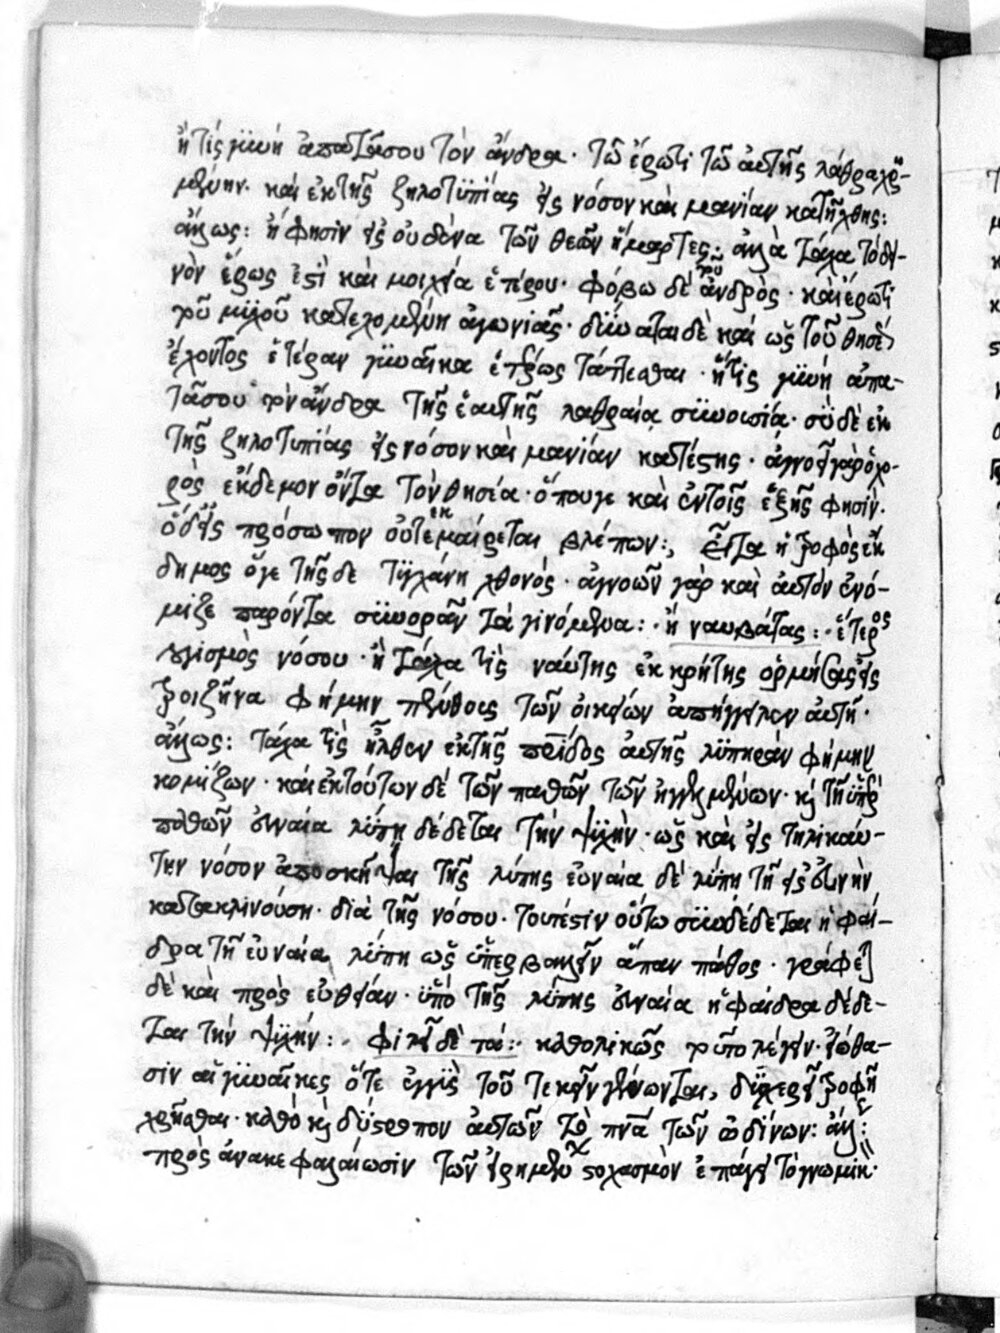 ἤ τις γυνὴ ἀπατᾷ σου τὸν ἄνδρα· τῷ ἔρωτι τῷ αὐτῆς λάθρα χρω-
μένη· καὶ ἐκ τῆς ζηλοτυπίας εἰς νόσον καὶ μανίαν κατῆλθες:
ἄλλως: ἤ φησιν εἰς οὐδένα τῶν θεῶν ἥμαρτες· ἀλλὰ τάχα τὸ δει-
νὸν ἔρως ἐστὶ καὶ μοιχεία ἑτέρου· φόβω δὲ τοῦ ἀνδρὸς· καὶ ἔρωτι
τοῦ μοιχοῦ κατεχομένη ἀγωνιᾷς· δύναται δὲ καὶ ὡς τοῦ θησέως
ἔχοντος ἑτέραν γυναῖκα ἑτέρως τάττεσθαι· ἤ τις γυνὴ ἀπα-
τᾷ σου τὸν ἄνδρα τῆς ἑαυτῆς λαθραία συνουσία· σὺ δὲ ἐκ
τῆς ζηλοτυπίας εἰς νόσον καὶ μανίαν κατέστης· ἀγνοεῖ γὰρ ὁ χο-
ρὸς ἔκδημον ὄντα τὸν θησέα· ὅπου γε καὶ ἐν τοῖς ἑξῆς φησίν·
ὁ δ' εἰς πρόσωπον οὐ τεκμαίρεται βλέπων:, εἶτα ἡ τροφὸς ἔκ
δημος ὅγε τῆςδε τυγχάνει χθονός· ἀγνοῶν γὰρ καὶ αὐτὸν ἐνό-
μιζε παρόντα συνορᾶν τὰ γινόμενα:· ἢ ναυβάτας:· ἕτερος
λογισμὸς νόσου· ἢ τάχα τὶς ναύτης ἐκ κρήτης ὁρμήσας εἰς
τροιζῆνα φήμην πένθους τῶν οἰκείων ἀπήγγειλεν αὐτῇ·
ἄλλως: τάχα τὶς ἦλθεν ἐκ τῆς πατρίδος αὐτῆς λυπηρὰν φήμην
κομίζων· καὶ ἐκ τούτων δὲ τῶν παθῶν τῶν ἠγγελμένων· καὶ τῇ ὑπὲρ
παθῶν εὐναία λύπη δέδεται τὴν ψυχὴν· ὡς καὶ εἰς τηλικαύ-
την νόσον ἀποσκῆψαι τῆς λύπης εὐναία δὲ λύπη τῇ εἰς εὐνὴν
κατακλινούση· διὰ τῆς νόσου· τουτέστιν οὕτω συνδέδεται ἡ φαί-
δρα τῇ εὐναία λύπη ὡς ὑπερβαλεῖν ἅπαν πάθος· γράφει
δὲ καὶ πρὸς εὐθεῖαν· ὑπὸ τῆς λύπης εὐναία ἡ φαίδρα δέδε-
ται τὴν ψυχήν:· φιλεῖ δὲ τᾷ:· καθολικῶς τοῦτο λέγει· εἰώθα-
σιν αἱ γυναῖκες ὅτε ἐγγὺς τοῦ τεκεῖν γένωνται, δυσχερεῖ τροφῇ
χρῆσθαι· καθὸ καὶ δύστροπον αὐτῶν τὸ πνεῦμα τῶν ὠδίνων: ἄλλως:
πρὸς ἀνακεφαλαίωσιν τῶν εἰρημένων στοχασμὸν ἐπάγει τὸ γνωμικ·